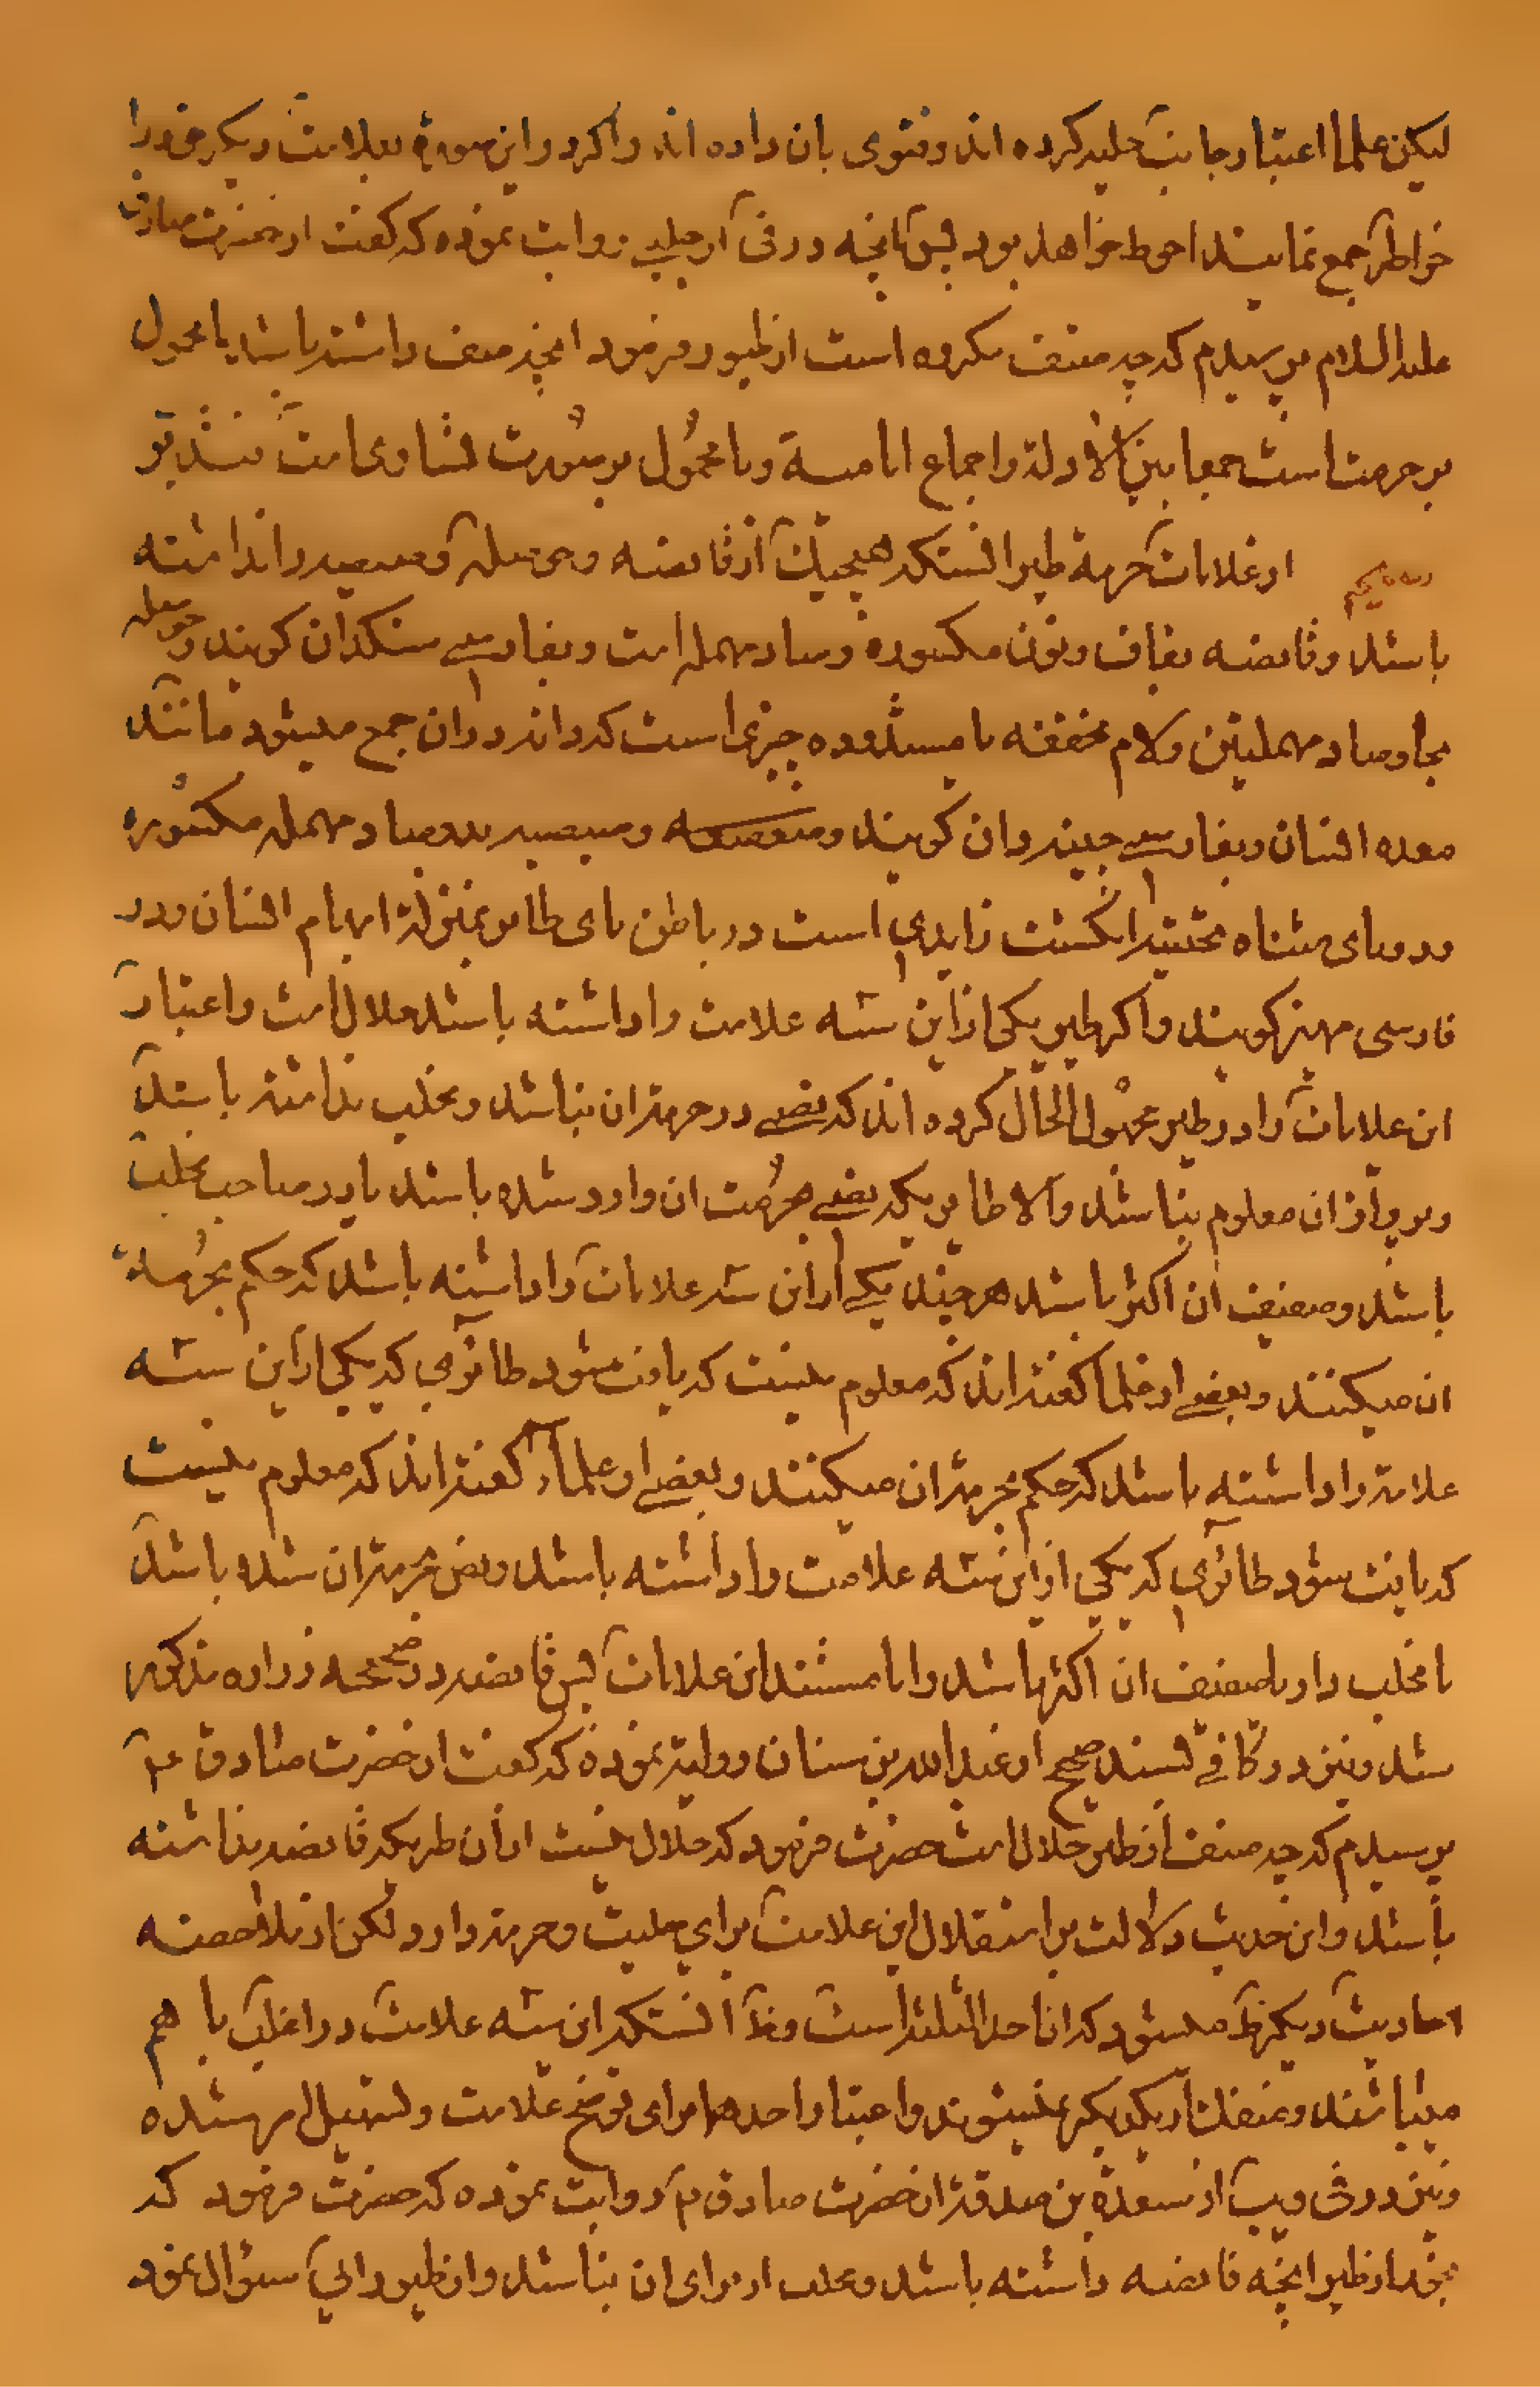 لیکن علما اعتبار جانب حلیه کرده اند و فتوی بان داده اند و اگر در این صورة بعلامت دیکر خود را
خواطر جمع نمایند احوط خواهد بود پس آنچه در فی از حلبی روایت نموده که کفت از حضرت صادق
علیه السلام پرسیدم که چه صنف مکروه است از طیور فرمود آنچه صف داشته باشد یا محمول
بر حرمت است جمعا بین الادلة و اجماع امامیة و یا محمول بر صورت تساوی است
از علامات حرمة طیر انستکه هیچیک از قانصه و حوصله و صیصیه را نداشته
باشد و قانصه بقاف و نون مکسوره و صاد مهمله است و بفارسی سنکدان کویند و حوصله
بحا و صاد مهملتین و لام مخففه یا مشدده چیزی است که دانه در ان جمع میشود مانند
معده انسان و بفارسی چینه دان کویند و صیصیه بدو صاد مهمله مکسوره
و دو یای مثناه تحتیه انکشت زایدی است در باطن پای طایر بمنزلة ابهام انسان و در
فارسی مهیز کویند و اکر طیر یکی از این سه علامت را داشته باشد حلال است و اعتبار
این علامات را در طیر مجهول الحال کرده اند که نصی در حرمة ان نباشد و مخلب نداشته باشد
و پرواز ان معلوم نباشد و الا طایریکه نصی بحرمت ان وارد شده باشد یا در صاحب مخلب
باشد و صفیف ان اکثر باشد هر چند یکی از این سه علامات را داشته باشد که حکم بحرمة
ان میکنند و بعضی از علما کفته اند که معلوم نیست که یافت شود طائری که یکی از این سه
علامة را داشته باشد که حکم بحرمة ان میکنند و بعضی از علما کفته اند که معلوم نیست
که یافت شود طائری که یکی از این سه علامت را داشته باشد و نص بحرمة ان شده باشد
یا مخلب دار یا صفیف ان اکثر باشد و اما مستند این علامات پس قانصه در صحیحه زراره مذکور
شد و نیز در کافی بسند صحیح از عبد الله بن سنان روایة نموده که کفت از حضرت صادق ع
پرسیدم که چه صنف از طیر حلال است حضرت فرمود که حلال نیست از ان طیریکه قانصه نداشته
باشد و این حدیث دلالت بر استقلال این علامت برای حلیت و حرمة دارد و لکن از ملاحضه
احادیث دیکر ظ میشود که انا احد الثلثه است و ظ انستکه این سه علامت در اغلب با هم
میباشند و منفک از یکدیکر نمیشوند و اعتبار احدها برای توضیح علامت و تسهیل امر شده
و نیز در فی و یب از مسعدة بن صدقة از حضرت صادق ع روایت نموده که حضرت فرمود که
بخور از طیر آنچه قانصه داشته باشد و مخلب از برای ان نباشد و از طیور ابی سؤال نمود